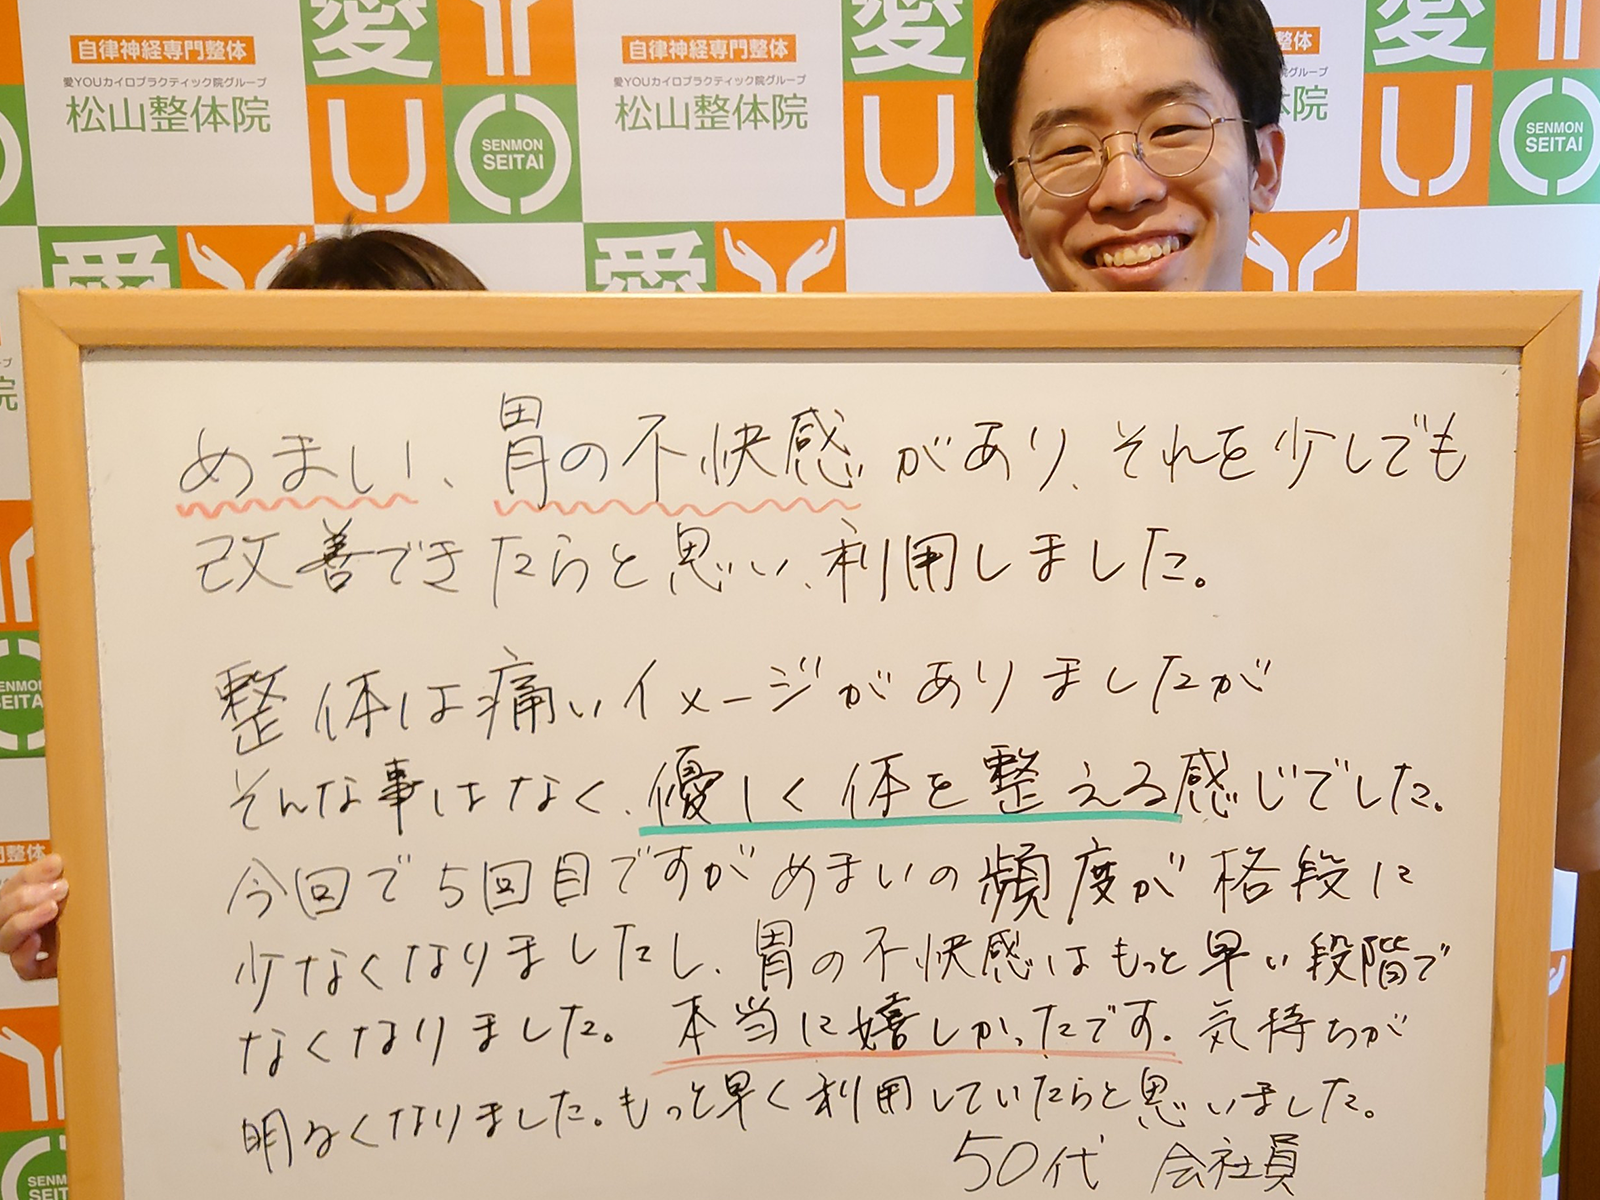 自律神経専門整体
愛YOUカイロプラクティック院グループ
松山整体院
愛
Y
U
SENMON
SEITAI
自律神経専門整体
愛YOUカイロプラクティック院グループ
松山整体院
愛
U
整体
院グループ
体院
愛
Y
U
SENMON
SEITAI
愛
愛
ープ
院
ENMON
SEITA
門整体
SENM
SEIT
めまい、胃の不快感があり、それを少しでも
改善できたらと思い、利用しました。
整体は痛いイメージがありましたが
そんな事はなく、優しく体を整える感じでした。
今回で5回目ですがめまいの頻度が格段に
少なくなりましたし、胃の不快感はもっと早い段階で
なくなりました。本当に嬉しかったです。気持ちが
明るくなりました。もっと早く利用していたらと思いました。
50代 会社員